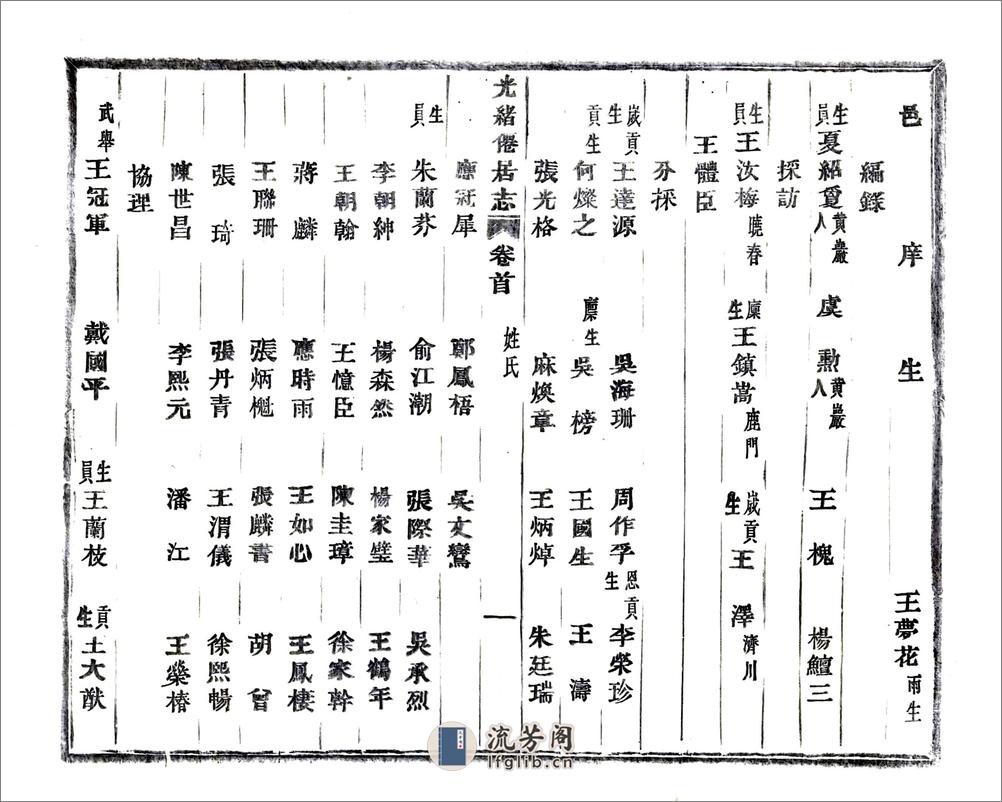 邑庠生 王夢花雨生
編錄
生員夏紹夔黃巖人 虞勲黃巖人 王槐 楊鱣三
採訪
生員王汝梅曉春 廩生王鎮嵩鹿門 歲貢生王澤濟川
王體臣
分採
歲貢生王達源 吳海珊 周作孚 恩貢生李榮珍
貢生何燦之 廩生吳榜 王國生 王濤
張光格 麻煥章 王炳焯 朱廷瑞
光緒僊居志 卷首 姓氏 一
應冠犀 鄭鳳梧 吳文鸞
生員朱蘭芬 俞江潮 張際華 吳承烈
李朝紳 楊森然 楊家璧 王鶴年
王朝翰 王憶臣 陳圭璋 徐家幹
蔣麟 應時雨 王如心 王鳳棲
王聯珊 張炳 張麟書 胡曾
張琦 張丹青 王渭儀 徐熙暢
陳世昌 李熙元 潘江 王燊椿
協理
武舉王冠軍 戴國平 生員王蘭枝 貢生王大猷
流芳阁
lfglib.cn